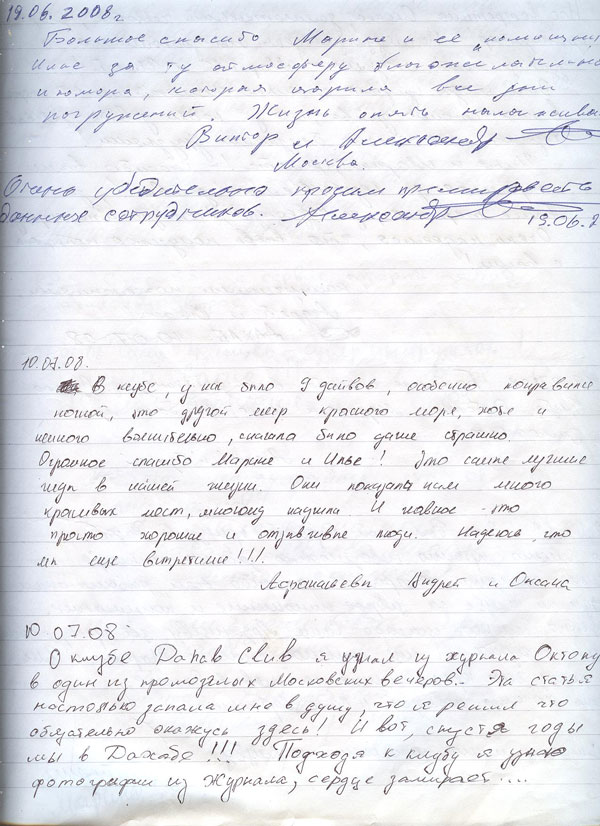 19.06.2008г
Большое спасибо Марине и её помощни
Илье за ту атмосферу благожелательно
и юмора, которая царила все дни
погружений. Жизнь опять налаживае
Виктор и Александр
Москва.
Очень убедительно просим премировать
данных сотрудников. Александр
19.06.2
10.07.08.
В клубе, у нас было 9 дайвов, особенно понравился
ночной, это другой мир красного моря, хотя и
немного волнительно, сначала было даже страшно.
Огромное спасибо Марине и Илье! Это самые лучшие
гиды в нашей жизни. Они показали нам много
красивых мест, многому научили. И главное - это
просто хорошие и отзывчивые люди. Надеюсь, что
мы еще встретимся!!!.
Андрей и Оксана
10.07.08.
О клубе Dahab Club я узнал из журнала Октопу
в один из промозглых Московских вечеров. - Эта статья
настолько запала мне в душу, что я решил что
обязательно окажусь здесь! И вот, спустя годы
мы в Дахабе!!! Подходя к клубу я узнаю
фотографии из журнала, сердце замирает....